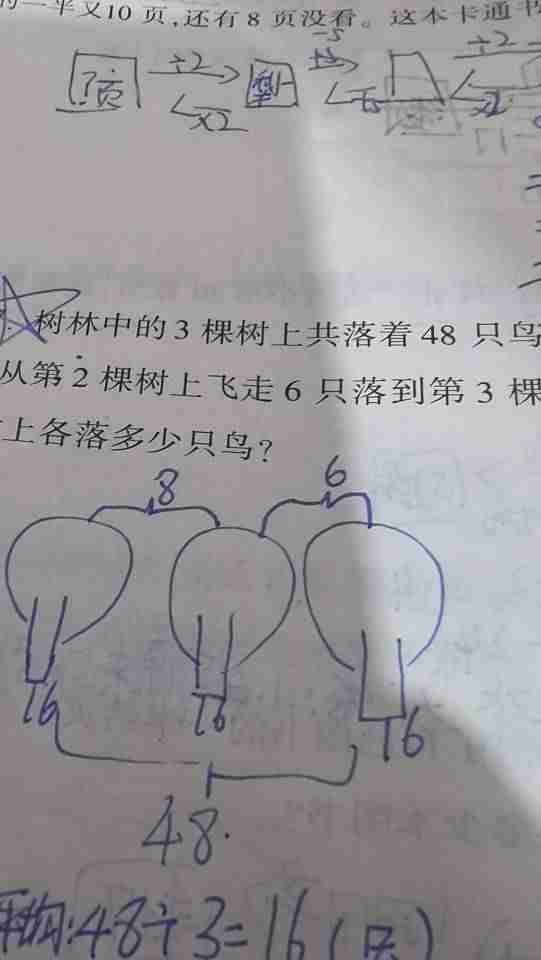 的一半又10页,还有8页没看。这本卡通书
?页 ÷2 -5 ÷2
×2 ×2
树林中的3棵树上共落着48只鸟
从第2棵树上飞走6只落到第3棵
上各落多少只鸟?
8 6
16 16 16
48.
平均:48÷3=16(只)